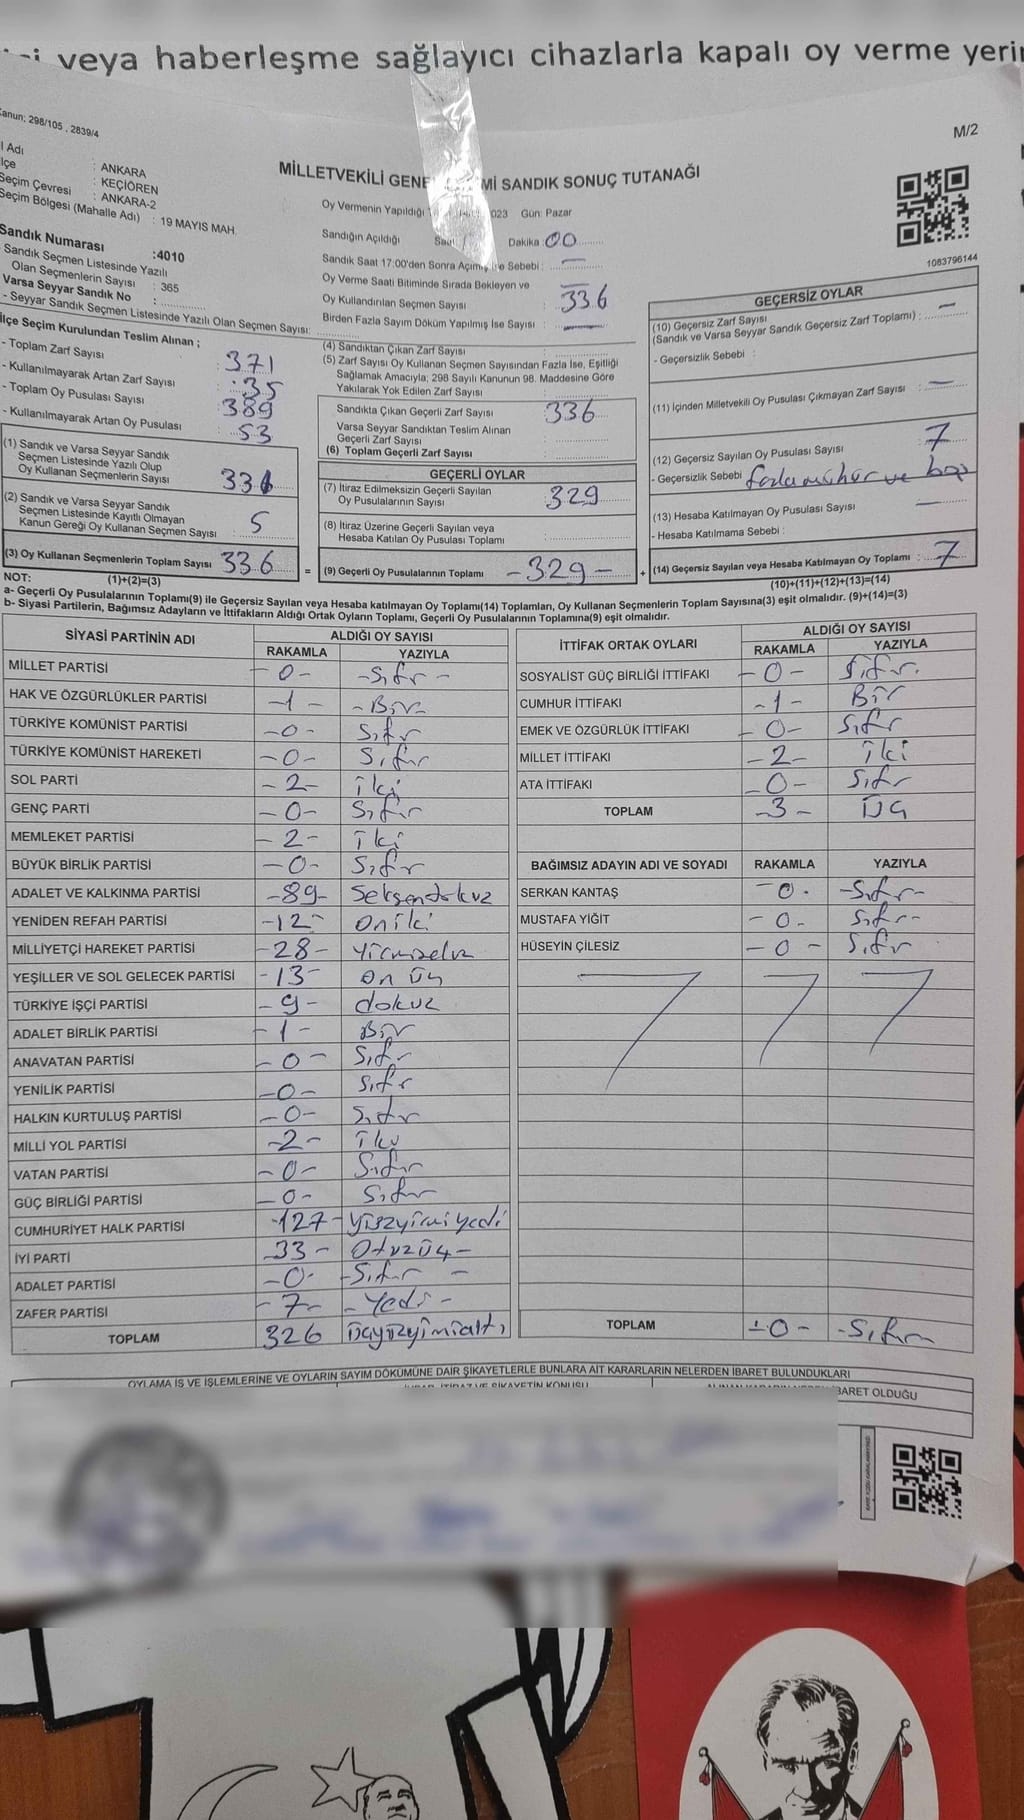 veya haberleşme sağlayıcı cihazlarla kapalı oy verme
Kanun: 298/105 , 2839/4
M/2
MİLLETVEKİLİ SANDIK SONUÇ TUTANAĞI
İl Adı : ANKARA
İlçe : KEÇİÖREN
Seçim Çevresi : ANKARA-2
Seçim Bölgesi (Mahalle Adı) : 19 MAYIS MAH.
Sandık Numarası :4010
Sandık Seçmen Listesinde Yazılı
Olan Seçmenlerin Sayısı : 365
Varsa Seyyar Sandık No :
- Seyyar Sandık Seçmen Listesinde Yazılı Olan Seçmen Sayısı:
Oy Vermenin Yapıldığı 023 Gün: Pazar
Sandığın Açıldığı Dakika :00
Sandık Saat 17:00'den Sonra Sebebi : —
Oy Verme Saati Bitiminde Sırada Bekleyen ve —
Oy Kullandırılan Seçmen Sayısı : 336
Birden Fazla Sayım Döküm Yapılmış İse Sayısı : —
1083796144
İlçe Seçim Kurulundan Teslim Alınan ;
- Toplam Zarf Sayısı : 371
- Kullanılmayarak Artan Zarf Sayısı : 35
- Toplam Oy Pusulası Sayısı : 389
- Kullanılmayarak Artan Oy Pusulası : 53
(1) Sandık ve Varsa Seyyar Sandık
Seçmen Listesinde Yazılı Olup
Oy Kullanan Seçmenlerin Sayısı : 331
(2) Sandık ve Varsa Seyyar Sandık
Seçmen Listesinde Kayıtlı Olmayan
Kanun Gereği Oy Kullanan Seçmen Sayısı : 5
(3) Oy Kullanan Seçmenlerin Toplam Sayısı : 336 =
(4) Sandıktan Çıkan Zarf Sayısı :
(5) Zarf Sayısı Oy Kullanan Seçmen Sayısından Fazla İse, Eşitliği
Sağlamak Amacıyla; 298 Sayılı Kanunun 98. Maddesine Göre
Yakılarak Yok Edilen Zarf Sayısı :
Sandıkta Çıkan Geçerli Zarf Sayısı : 336
Varsa Seyyar Sandıktan Teslim Alınan
Geçerli Zarf Sayısı :
(6) Toplam Geçerli Zarf Sayısı :
GEÇERLİ OYLAR
(7) İtiraz Edilmeksizin Geçerli Sayılan
Oy Pusulalarının Sayısı : 329
(8) İtiraz Üzerine Geçerli Sayılan veya
Hesaba Katılan Oy Pusulası Toplamı :
(9) Geçerli Oy Pusulalarının Toplamı : -329- +
GEÇERSİZ OYLAR
(10) Geçersiz Zarf Sayısı
(Sandık ve Varsa Seyyar Sandık Geçersiz Zarf Toplamı) : —
- Geçersizlik Sebebi :
(11) İçinden Milletvekili Oy Pusulası Çıkmayan Zarf Sayısı : —
(12) Geçersiz Sayılan Oy Pusulası Sayısı : 7
- Geçersizlik Sebebi : ve
(13) Hesaba Katılmayan Oy Pusulası Sayısı : —
- Hesaba Katılmama Sebebi :
(14) Geçersiz Sayılan veya Hesaba Katılmayan Oy Toplamı : 7
NOT: (1)+(2)=(3)
(10)+(11)+(12)+(13)=(14)
a- Geçerli Oy Pusulalarının Toplamı(9) ile Geçersiz Sayılan veya Hesaba katılmayan Oy Toplamı(14) Toplamları, Oy Kullanan Seçmenlerin Toplam Sayısına(3) eşit olmalıdır. (9)+(14)=(3)
b- Siyasi Partilerin, Bağımsız Adayların ve İttifakların Aldığı Ortak Oyların Toplamı, Geçerli Oy Pusulalarının Toplamına(9) eşit olmalıdır.
SİYASİ PARTİNİN ADI ALDIĞI OY SAYISI
RAKAMLA YAZIYLA
MİLLET PARTİSİ -0- -Sıfır-
HAK VE ÖZGÜRLÜKLER PARTİSİ -1- -Bir-
TÜRKİYE KOMÜNİST PARTİSİ -0- Sıfır
TÜRKİYE KOMÜNİST HAREKETİ -0- Sıfır
SOL PARTİ -2- iki
GENÇ PARTİ -0- Sıfır
MEMLEKET PARTİSİ -2- iki
BÜYÜK BİRLİK PARTİSİ -0- Sıfır
ADALET VE KALKINMA PARTİSİ -89- Seksendokuz
YENİDEN REFAH PARTİSİ -12- oniki
MİLLİYETÇİ HAREKET PARTİSİ -28- Yirmisekiz
YEŞİLLER VE SOL GELECEK PARTİSİ -13- on üç
TÜRKİYE İŞÇİ PARTİSİ -9- dokuz
ADALET BİRLİK PARTİSİ -1- Bir
ANAVATAN PARTİSİ -0- Sıfır
YENİLİK PARTİSİ -0- Sıfır
HALKIN KURTULUŞ PARTİSİ -0- Sıfır
MİLLİ YOL PARTİSİ -2- iki
VATAN PARTİSİ -0- Sıfır
GÜÇ BİRLİĞİ PARTİSİ -0- Sıfır
CUMHURİYET HALK PARTİSİ -127- Yüzyirmiyedi
İYİ PARTİ -33- Otuzüç-
ADALET PARTİSİ -0- -Sıfır-
ZAFER PARTİSİ -7- -Yedi-
TOPLAM 326 üçyüzyirmialtı
İTTİFAK ORTAK OYLARI ALDIĞI OY SAYISI
RAKAMLA YAZIYLA
SOSYALİST GÜÇ BİRLİĞİ İTTİFAKI -0- Sıfır.
CUMHUR İTTİFAKI -1- Bir
EMEK VE ÖZGÜRLÜK İTTİFAKI -0- Sıfır
MİLLET İTTİFAKI -2- iki
ATA İTTİFAKI -0- Sıfır
TOPLAM -3- Üç
BAĞIMSIZ ADAYIN ADI VE SOYADI RAKAMLA YAZIYLA
SERKAN KANTAŞ -0- -Sıfır-
MUSTAFA YİĞİT -0- Sıfır-
HÜSEYİN ÇİLESİZ -0- Sıfır
TOPLAM -0- -Sıfır
OYLAMA İŞ VE İŞLEMLERİNE VE OYLARIN SAYIM DÖKÜMÜNE DAİR ŞİKAYETLERLE BUNLARA AİT KARARLARIN NELERDEN İBARET BULUNDUKLARI
İBARET OLDUĞU